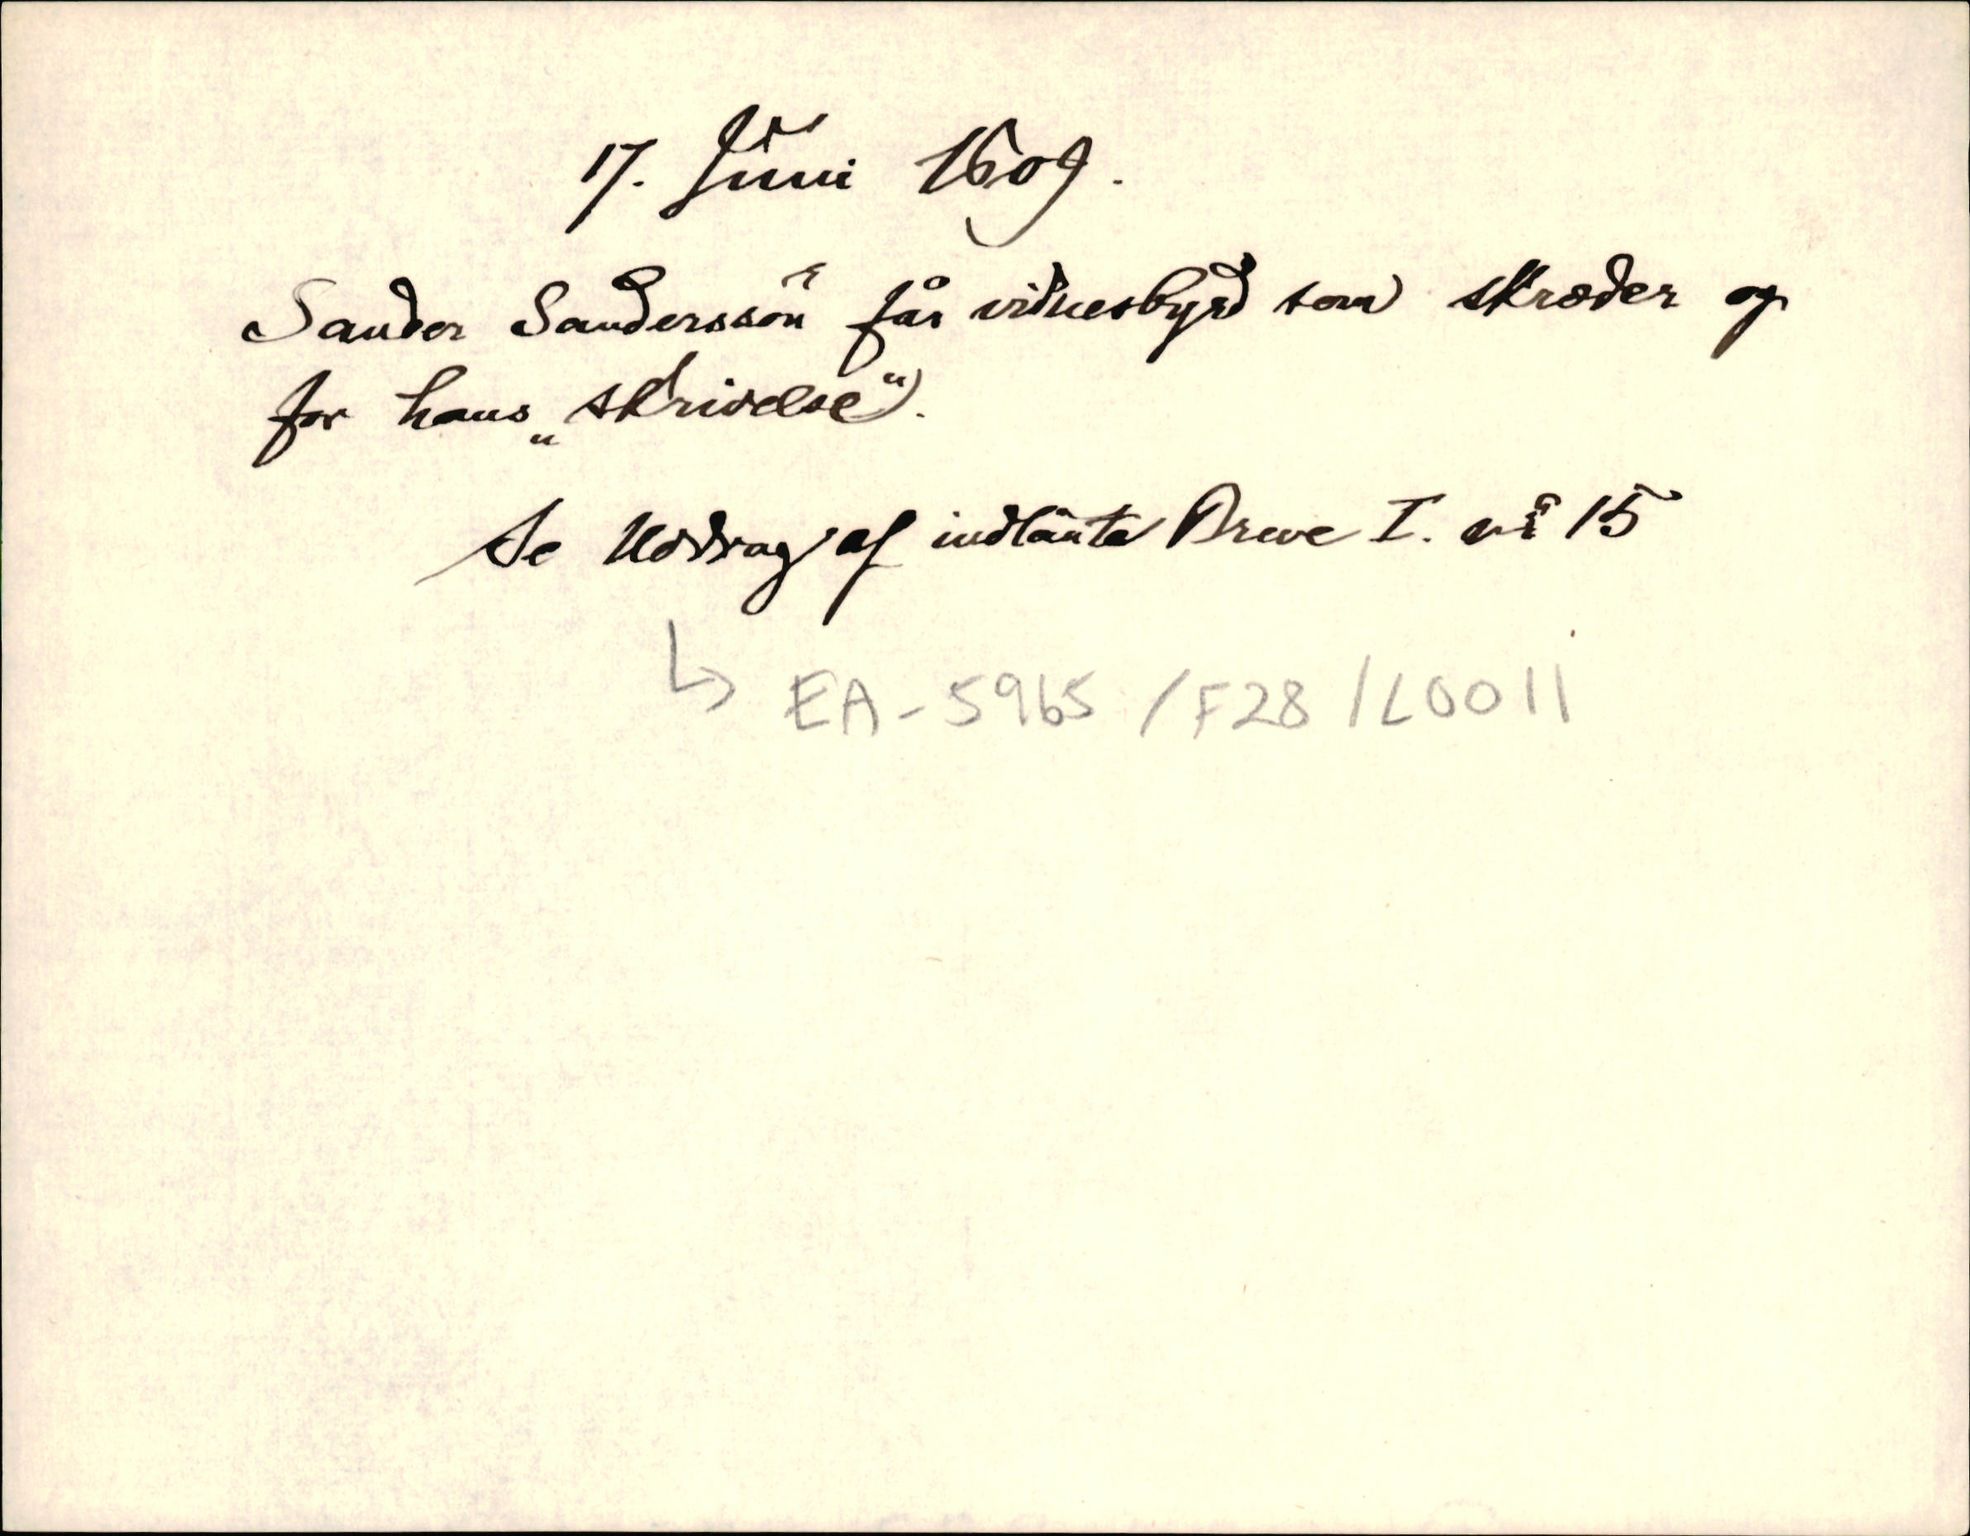 17. Juni 1609.
Sander Sanderssön får vidnesbyrd som skræder og
for hans „skrivelse“.
Se Uddrag af indlånte Breve I. nr 15
↳ EA-5965 /F28/L0011